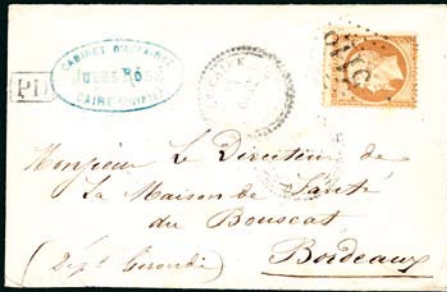 CABINET D'AFFAIRES
JULES ROSÉ
CAIRE
PD
CAIRE
Monsieur Le Directeur de
La Maison de Santé
du Bouscat
Bordeaux
(Dépt Gironde)